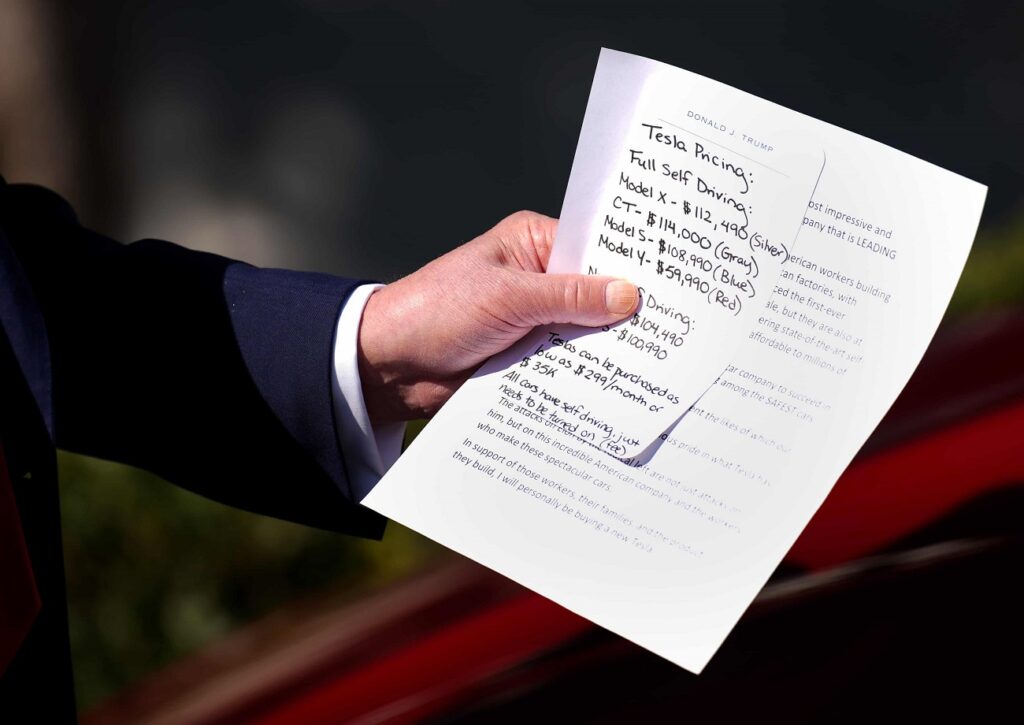 DONALD J. TRUMP
Tesla Pricing:
Full Self Driving:
Model X - $112,490 (Silver)
CT - $114,000 (Gray)
Model S - $108,990 (Blue)
Model Y - $59,990 (Red)
Driving:
$104,490
- $100,990
Teslas can be purchased as
low as $299/month or
$35K
All cars have self driving, just
needs to be turned on (fee)
impressive and
that is LEADING
American workers building
factories, with
the first-ever
but they are also at
state-of-the-art self
affordable to millions of
car company to succeed in
among the SAFEST cars
the likes of which our
pride in what Tesla has
The attacks on left are not just attacks on
him, but on this incredible American company and the workers
who make these spectacular cars.
In support of those workers, their families, and the product
they build, I will personally be buying a new Tesla.